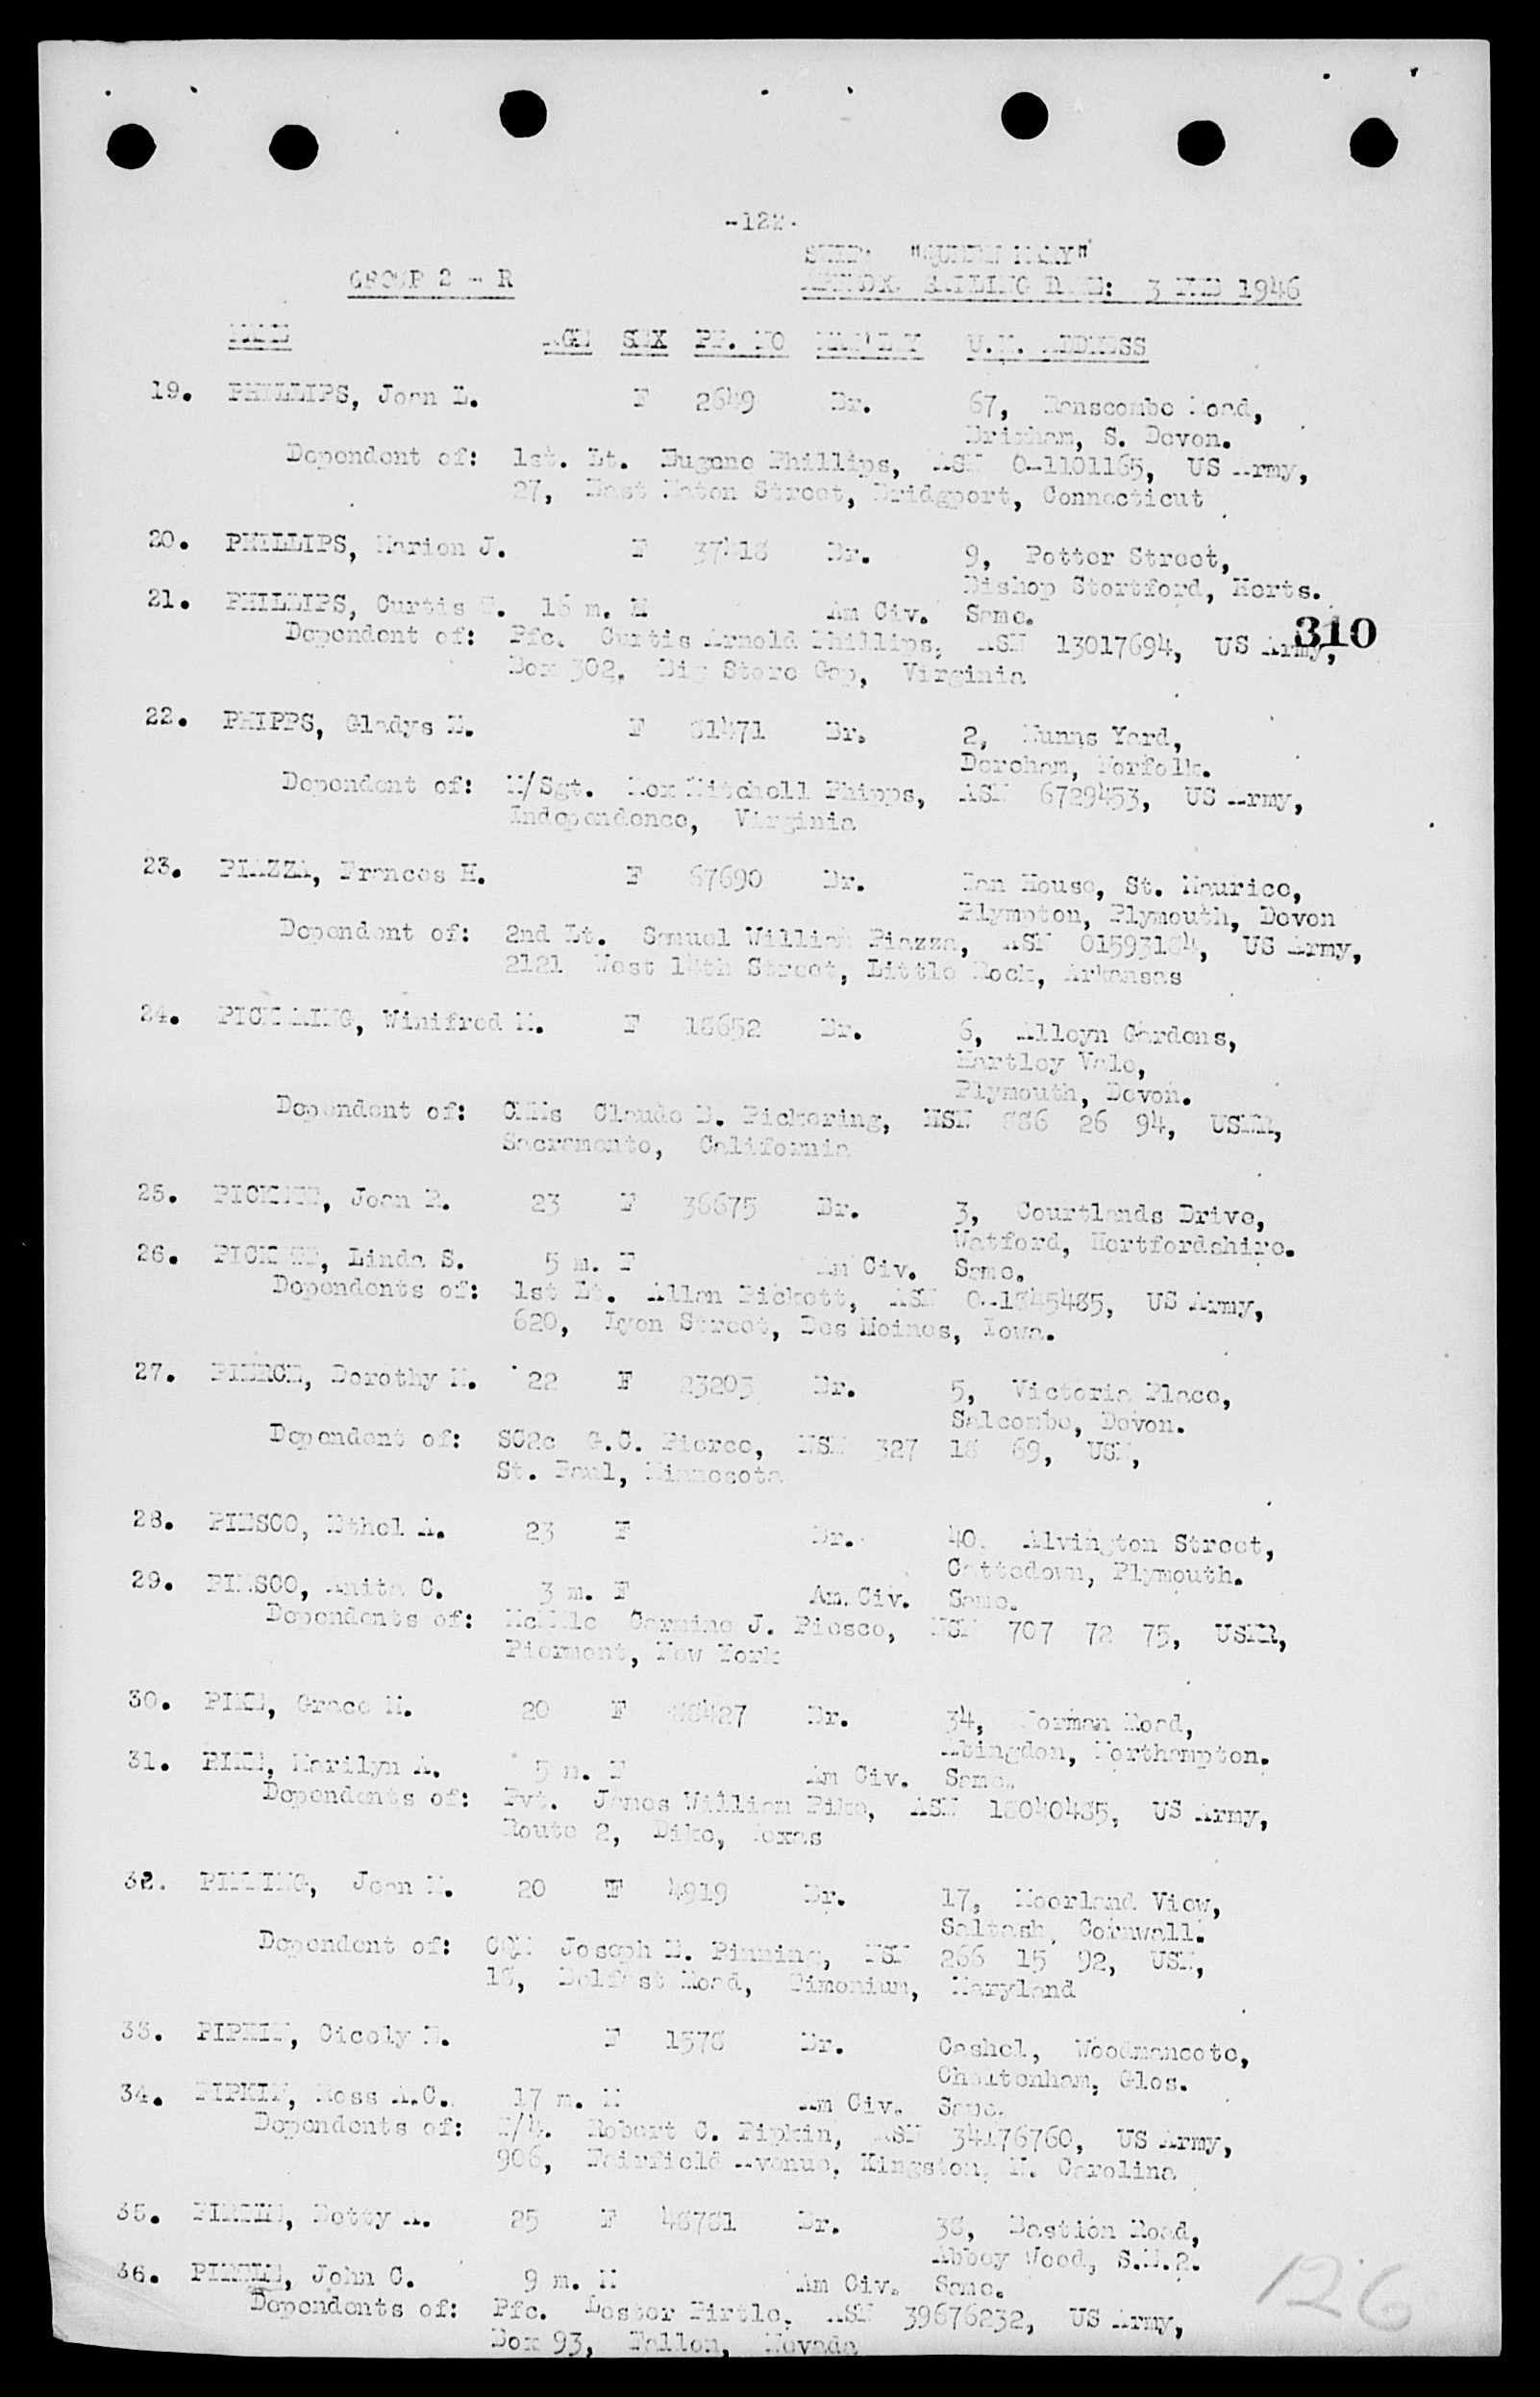 -122-
SHIP: "QUEEN MARY"
GROUP 2 - R
APPROX. SAILING DATE: 3 FEB 1946
NAME AGE SEX PP. NO NAT'LTY U.K. ADDRESS
19. PHILLIPS, Joan L. F 2649 Br. 67, Ranscombe Road,
Brixham, S. Devon.
Dependent of: 1st. Lt. Eugene Phillips, ASN 0-1101165, US Army,
27, East Eaton Street, Bridgport, Connecticut
20. PHILLIPS, Marion J. F 37418 Br. 9, Potter Street,
Bishop Stortford, Herts.
21. PHILLIPS, Curtis 16 m. M Am Civ. Same.
310
Dependent of: Pfc. Curtis Arnold Phillips, ASN 13017694, US Army,
Box 302, Big Stone Gap, Virginia
22. PHIPPS, Gladys M. F 81471 Br. 2, Nunns Yard,
Dereham, Norfolk.
Dependent of: M/Sgt. Rex Mitchell Phipps, ASN 6729453, US Army,
Independence, Virginia
23. PIAZZA, Frances H. F 67690 Br. House, St. Maurice,
Plympton, Plymouth, Devon
Dependent of: 2nd Lt. Samuel William Piazza, ASN 01593184, US Army,
2121 West 14th Street, Little Rock, Arkansas
24. Winifred M. F 18652 Br. 6, Alleyn Gardens,
Hartley Vale,
Plymouth, Devon.
Dependent of: Claude D. Pickering, NSN 886 26 94, USNR,
Sacramento, California
25. PICKETT, Joan R. 23 F 36675 Br. 3, Courtlands Drive,
Watford, Hertfordshire.
26. PICKETT, Linda S. 5 m. F Am Civ. Same.
Dependents of: 1st Lt. Allan Pickett, ASN 0-1845485, US Army,
620, Lyon Street, Des Moines, Iowa.
27. PIERCE, Dorothy M. 22 F 23203 Br. 5, Victoria Place,
Salcombe, Devon.
Dependent of: SC2c G.C. Pierce, NSN 327 18 69, USN,
St. Paul, Minnesota
28. PIESCO, Ethel A. 23 F Br. 40. Alvington Street,
Cattedown, Plymouth.
29. PIESCO, Anita C. 3 m. F Am. Civ. Same.
Dependents of: Carmine J. Piesco, NSN 707 72 75, USNR,
Piermont, New York
30. PIKE, Grace M. 20 F 88427 Br. 34, Norman Road,
Abingdon, Northampton.
31. PIKE, Marilyn A. 5 m. F Am Civ. Same.
Dependents of: Pvt. James William Pike, ASN 18040485, US Army,
Route 2, Dike, Texas
32. PINNING, Joan M. 20 F 4919 Br. 17, Moorland View,
Saltash, Cornwall.
Dependent of: CQM Joseph E. Pinning, NSN 266 15 92, USN,
18, Belfast Road, Timonium, Maryland
33. PIPKIN, Cicely F 1578 Br. Cashel, Woodmancote,
Cheltenham, Glos.
34. PIPKIN, Ross A.C. 17 m. M Am Civ. Same.
Dependents of: T/4. Robert C. Pipkin, ASN 34176760, US Army,
906, Fairfield Avenue, Kingston, N. Carolina
35. PIRTLE, Betty A. 25 F 48781 Br. 38, Bastion Road,
Abbey Wood, S.E.2.
36. PIRTLE, John C. 9 m. M Am Civ. Same.
Dependents of: Pfc. Lester Pirtle, ASN 39676232, US Army,
Box 93, Fallon, Nevada
126